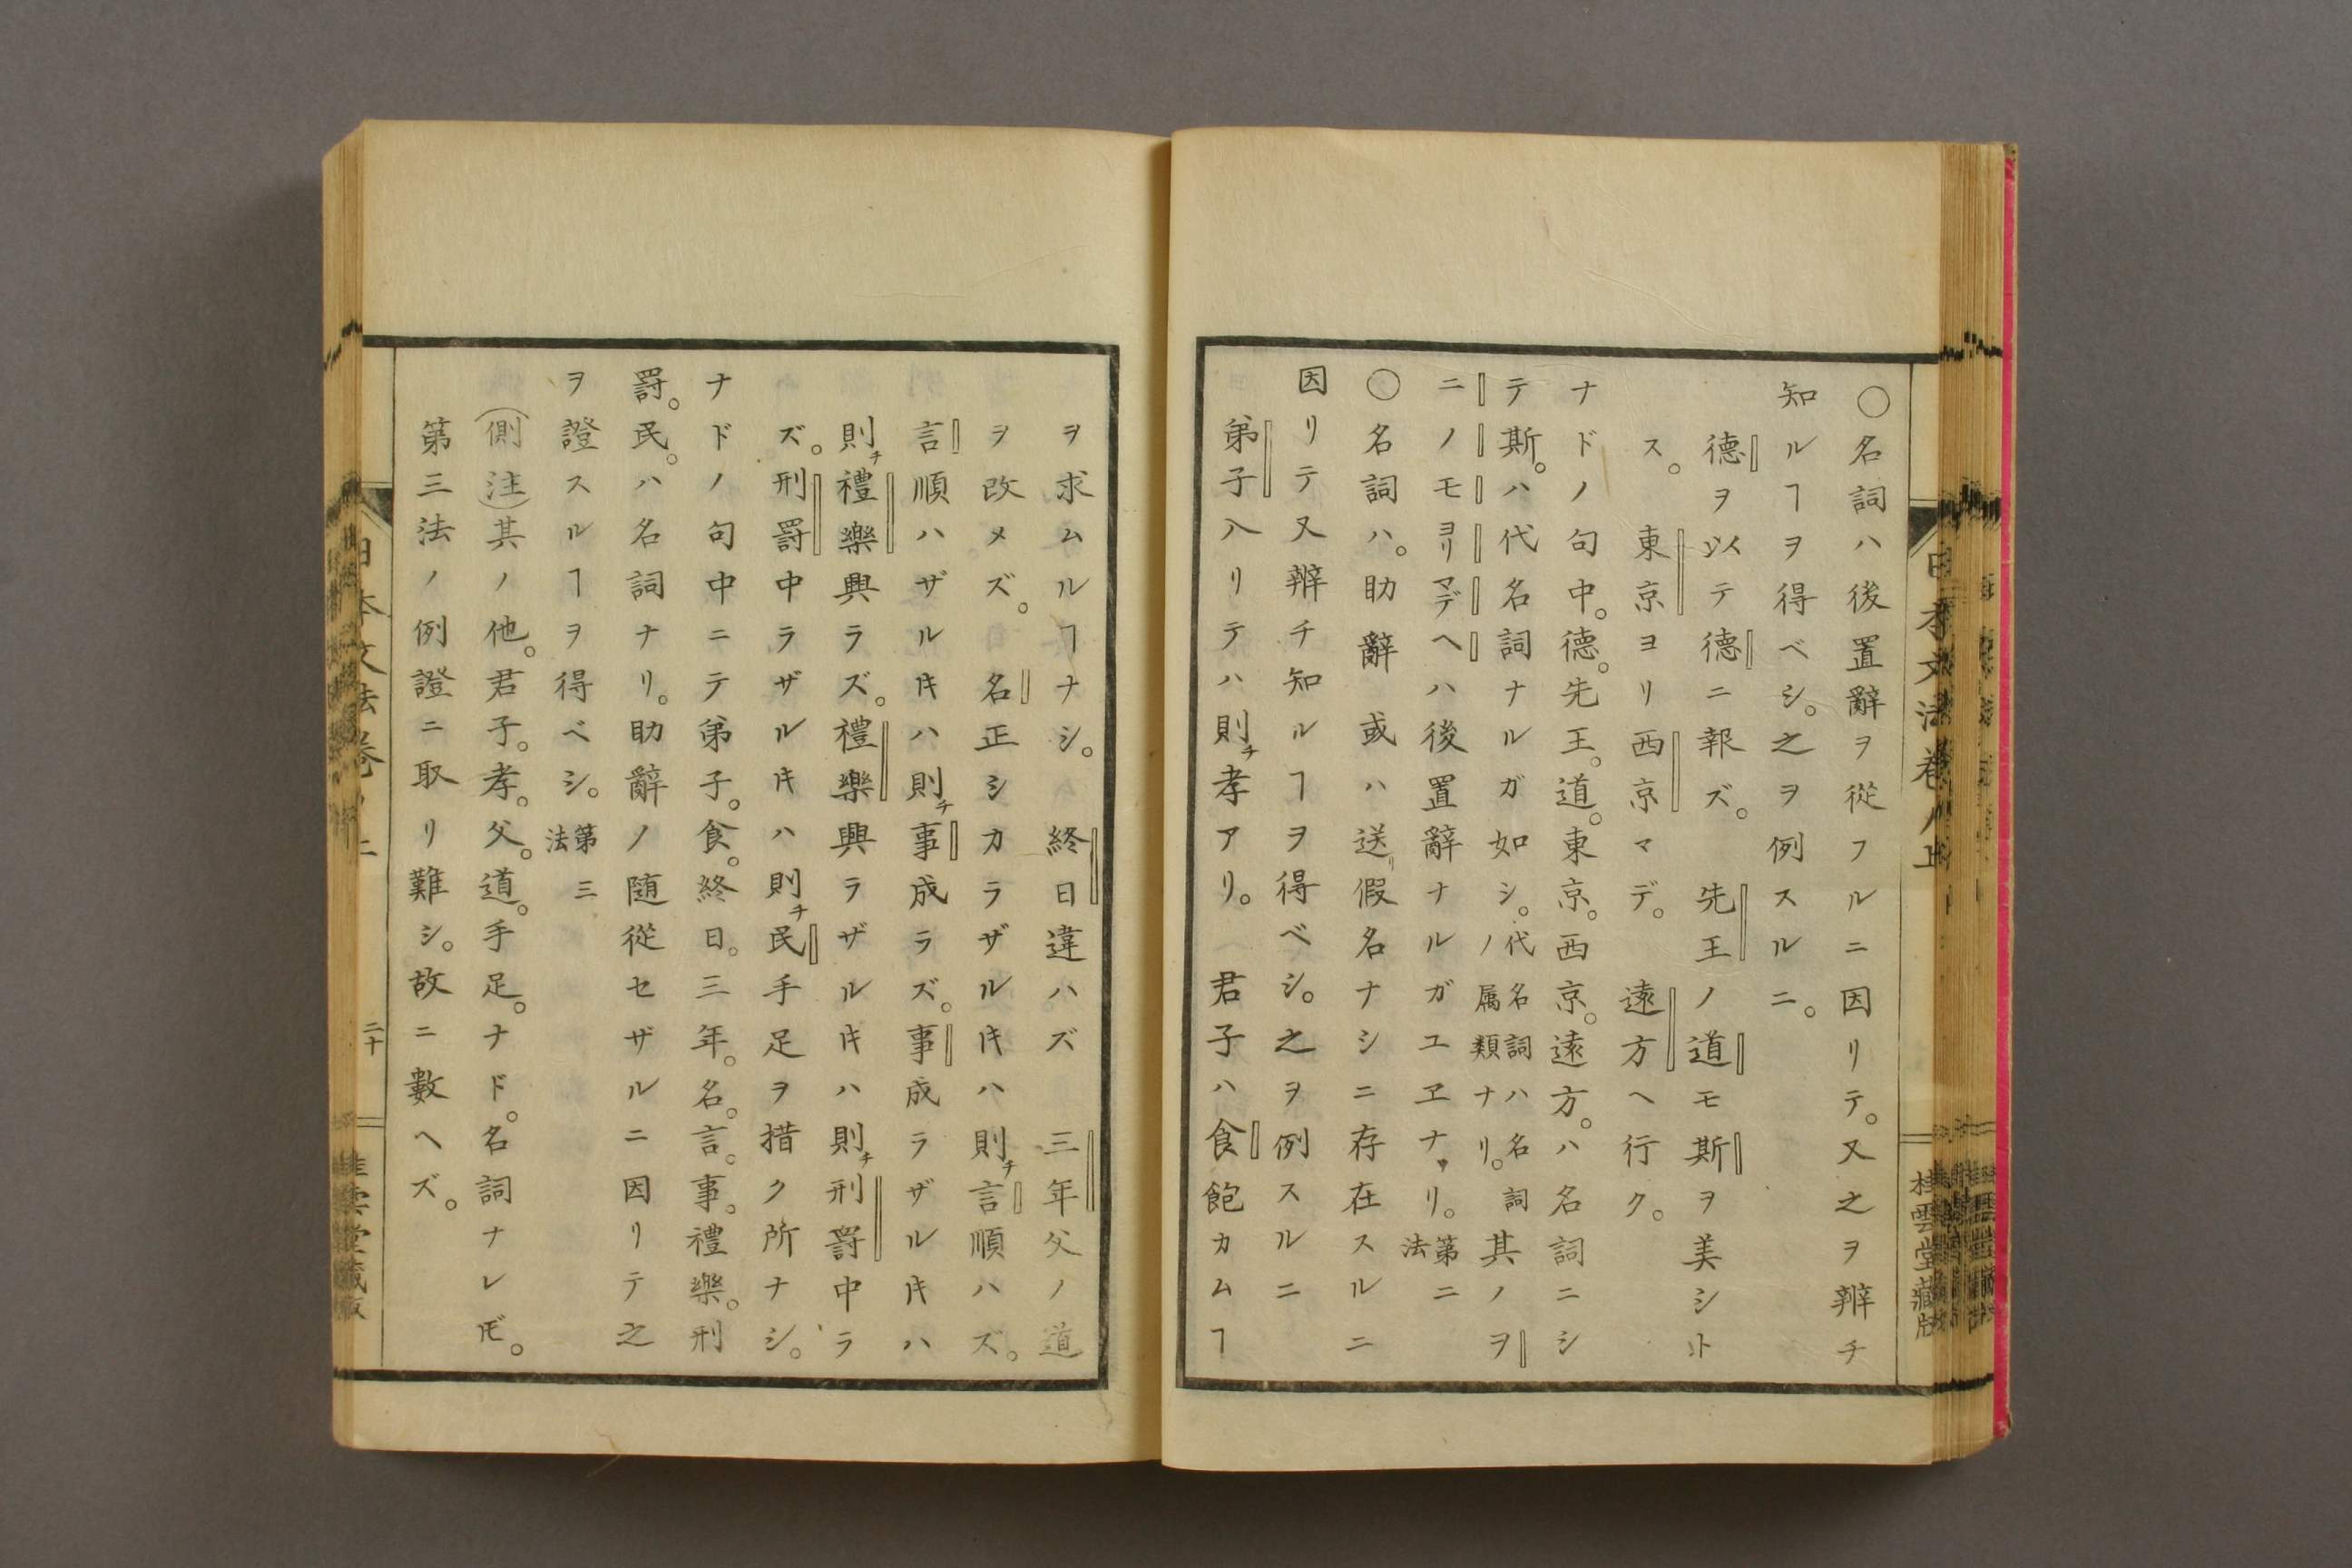 日本文法卷ノ上
桂雲堂藏版
〇名詞ハ後置辭ヲ從フルニ因リテ。又之ヲ辨チ
知ルヿヲ得ベシ。之ヲ例スルニ。
德ヲ以テ德ニ報ズ。 先王ノ道モ斯ヲ美シト
ス。 東京ヨリ西京マデ。 遠方ヘ行ク。
ナドノ句中。德。先王。道。東京。西京。遠方。ハ名詞ニシ
テ斯。ハ代名詞ナルガ如シ。代名詞ハ名詞ノ属類ナリ。其ノヲ
ニノモヨリマデヘハ後置辭ナルガユヱナリ。第二法
〇名詞ハ。助辭 或ハ送リ假名ナシニ存在スルニ
因リテ又辨チ知ルヿヲ得ベシ。之ヲ例スルニ
弟子入リテハ則チ孝アリ。 君子ハ食飽カムヿ
ヲ求ムルヿナシ。 終日違ハズ 三年父ノ道
ヲ改メズ。 名正シカラザルキハ則チ言順ハズ。
言順ハザルキハ則チ事成ラズ。事成ラザルキハ
則チ禮樂興ラズ。禮樂興ラザルキハ則チ刑罸中ラ
ズ。刑罸中ラザルキハ則チ民手足ヲ措ク所ナシ。
ナドノ句中ニテ弟子。食。終日。三年。名。言。事。禮樂。刑
罸。民。ハ名詞ナリ。助辭ノ随従セザルニ因リテ之
ヲ證スルヿヲ得ベシ。第三法
(側注)其ノ他。君子。孝。父。道。手足。ナド。名詞ナレ𪜈。
第三法ノ例證ニ取リ難シ。故ニ數ヘズ。
二十